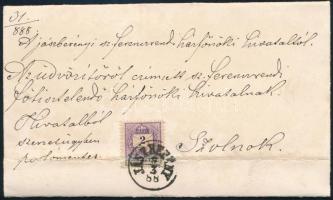 31.
888.
Jászberényi sz. Ferencrendi házfőnöki hivataltól.
Az üdvözítőről címzett sz. Ferencrendi
főtisztelendő házfőnöki hivatalnak.
Hivatalból
szerzetügyben
portómentes
Szolnok.
2
88